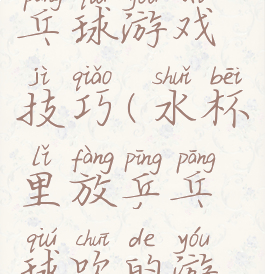 乒球游戏
jì qiǎo shuǐ bēi
技巧(水杯
lǐ fàng pīng pāng
里放乒乓
qiú chuī de yóu
球吹的游